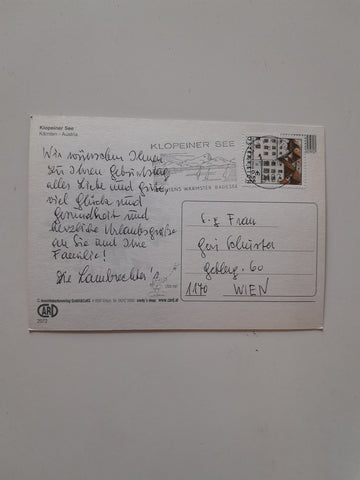 Klopeiner See
Kärnten - Austria
KLOPEINER SEE
KÄRNTENS WÄRMSTER BADESEE
ÖSTERREICH
Wir wünschen Ihnen
zu Ihrem Geburtstag
alles Liebe und Gute,
viel Glück und
Gesundheit und
herzliche Urlaubsgrüße
an Sie und Ihre
Familie!
Die Lambrechter!
Frau
Geblerg. 60
1170 WIEN
www.card.at
CARD
2072